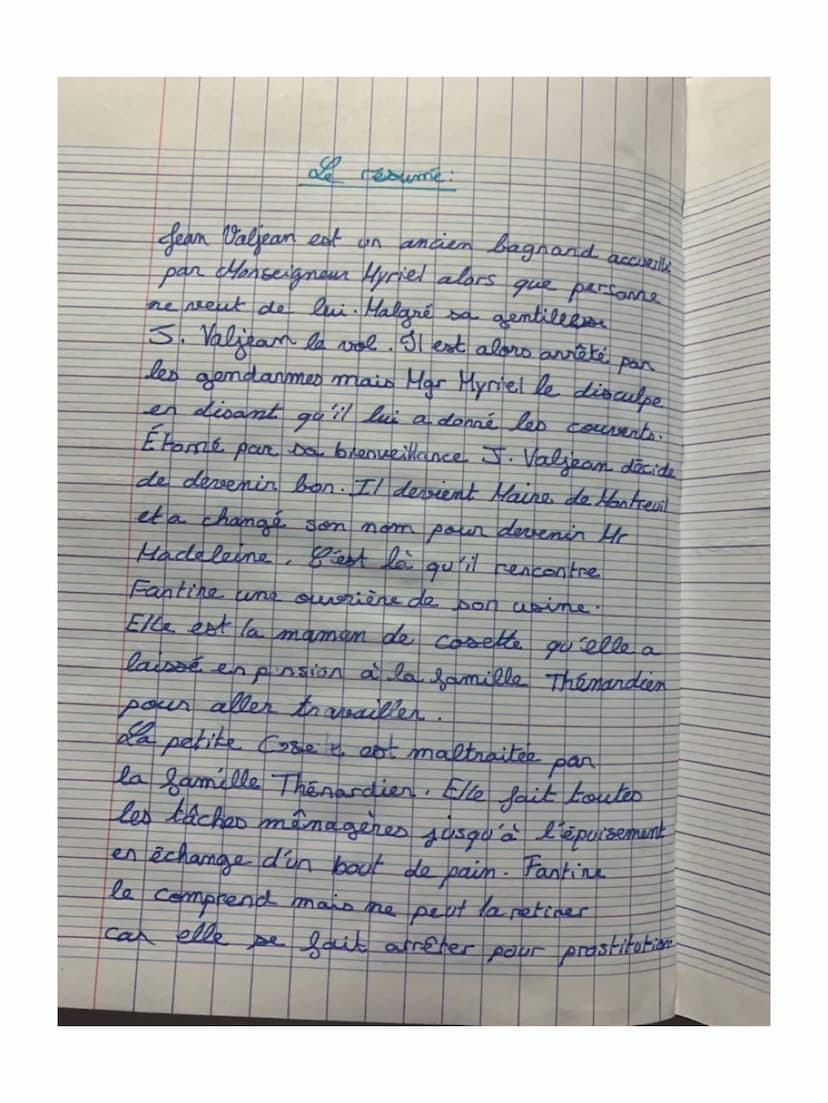 Le résumé:
Jean Valjean est un ancien bagnard accueilli
par Monseigneur Myriel alors que personne
ne veut de lui. Malgré sa gentillesse
J. Valjean le vol. Il est alors arrêté par
les gendarmes mais Mgr Myriel le disculpe
en disant qu'il lui a donné les couverts.
Étonné par sa bienveillance J. Valjean décide
de devenir bon. Il devient Maire de Montreuil
et a changé son nom pour devenir Mr
Madeleine. C'est là qu'il rencontre
Fantine une ouvrière de son usine.
Elle est la maman de cosette qu'elle a
laissé en pension à la famille Thénardier
pour aller travailler.
La petite Cosette est maltraitée par
la famille Thénardier. Elle fait toutes
les tâches ménagères jusqu'à l'épuisement
en échange d'un bout de pain. Fantine
le comprend mais ne peut la retirer
car elle se fait arrêter pour prostitution